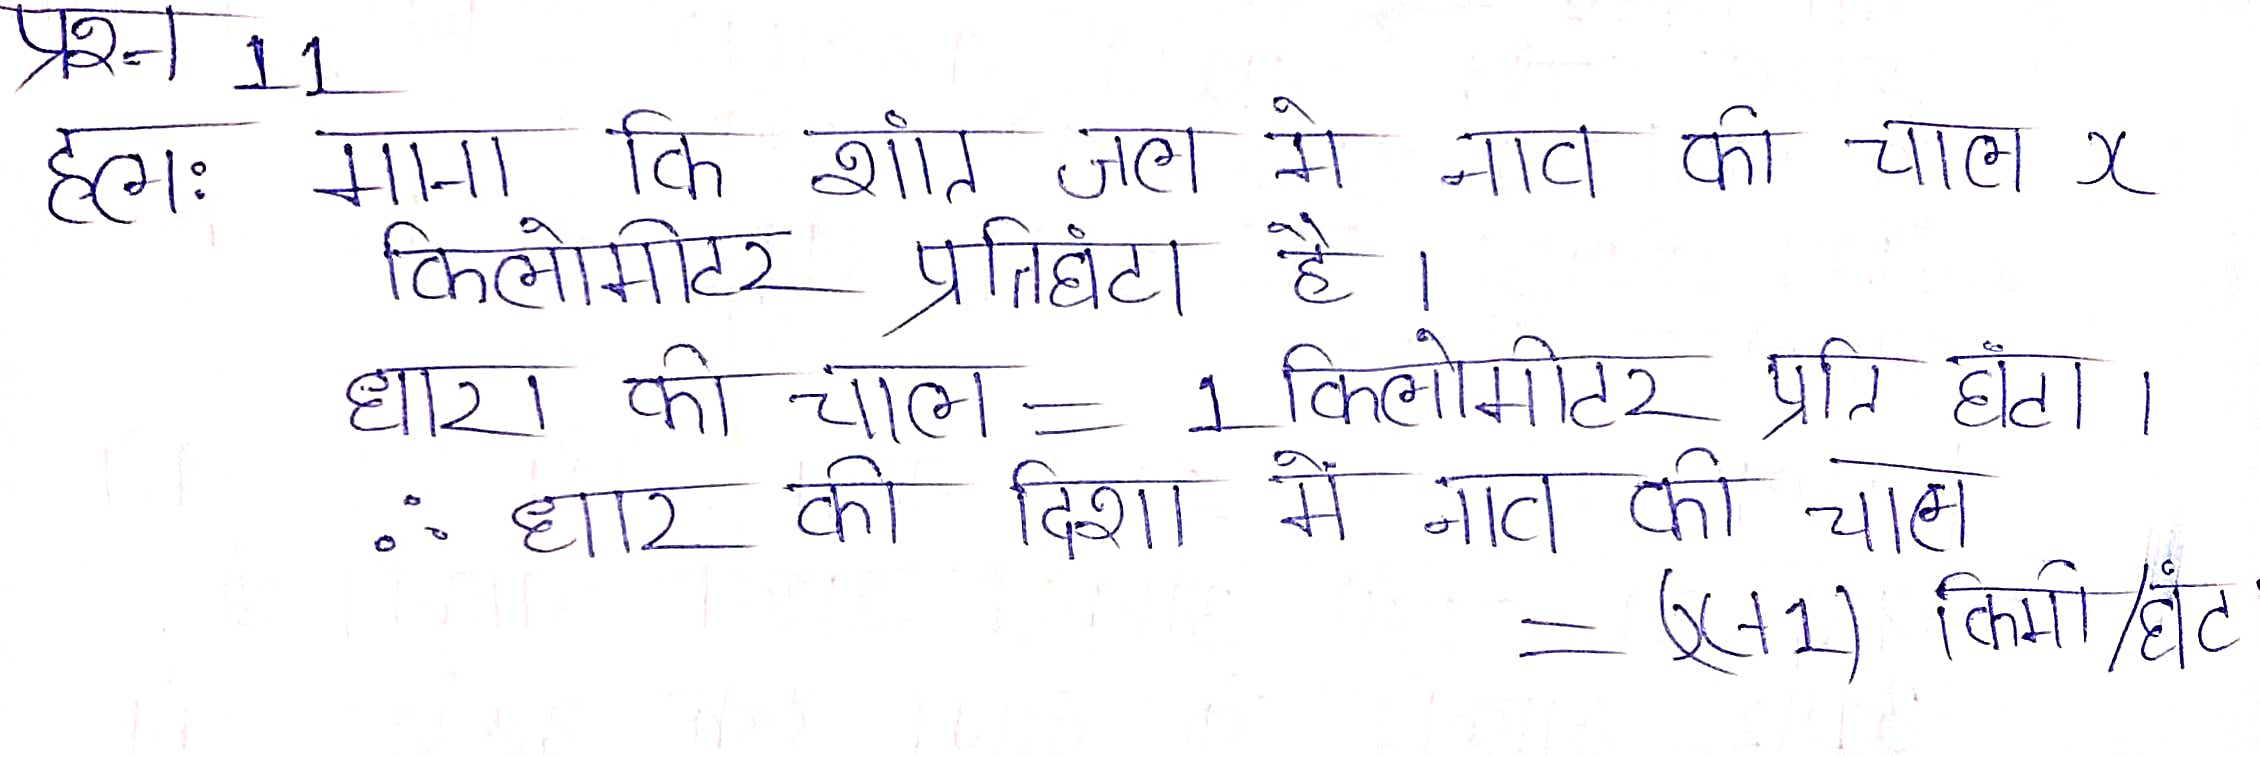 प्रश्न 11
हलः माना कि शांत जल मे नाव की चाल x
किलोमीटर प्रतिघंटा है ।
धारा की चाल = 1 किलोमीटर प्रति घंटा ।
∴ धार की दिशा में नाव की चाल
= (x+1) किमी/घंट